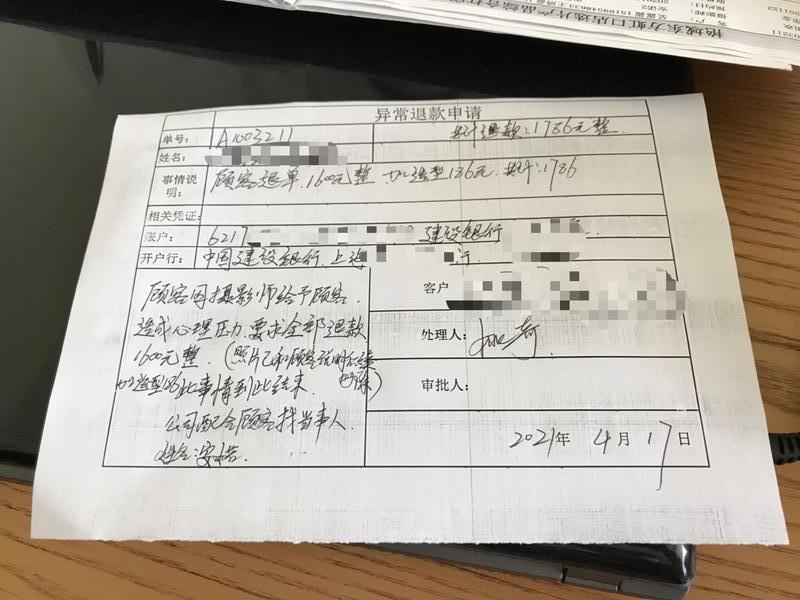 异常退款申请
单号: A1003211 共计退款:1786元整.
姓名:
事情说明: 顾客退单.1600元整 加造型186元.共计:1786
相关凭证:
账户: 6217 建设银行
开户行: 中国建设银行.上海 行.
顾客因摄影师给予顾客
造成心理压力.要求全部退款
1600元整.(照片已和顾客说明
加造型186此事情到此结束.
公司配合顾客找当事人
客户
处理人:
审批人:
2021年 4月17日